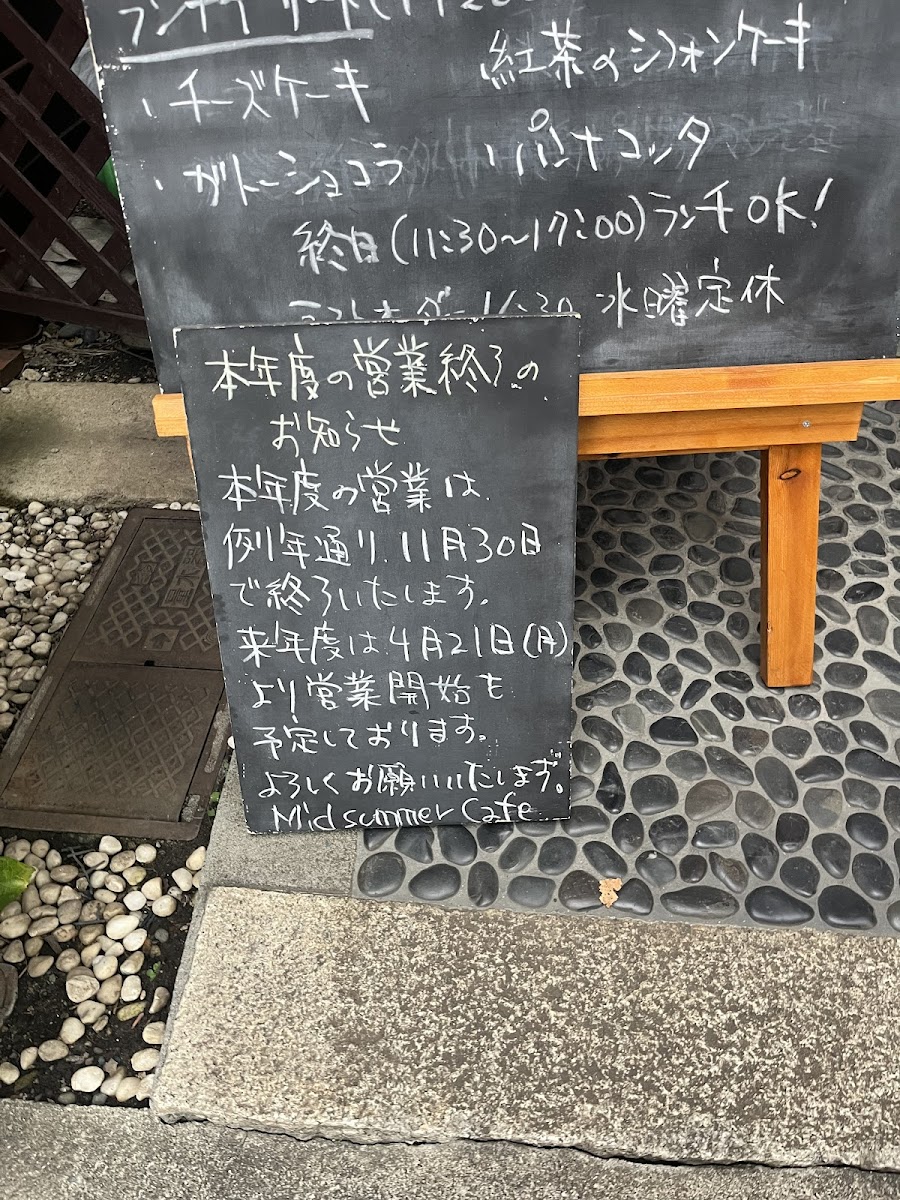 ・チーズケーキ
紅茶のシフォンケーキ
・ガトーショコラ
・パンナコッタ
終日(11:30〜17:00)ランチOK!
水曜定休
本年度の営業終了の
お知らせ
本年度の営業は
例年通り、11月30日
で終了いたします。
来年度は4月21日(月)
より営業開始を
予定しております。
よろしくお願いいたします。
Midsummer Cafe